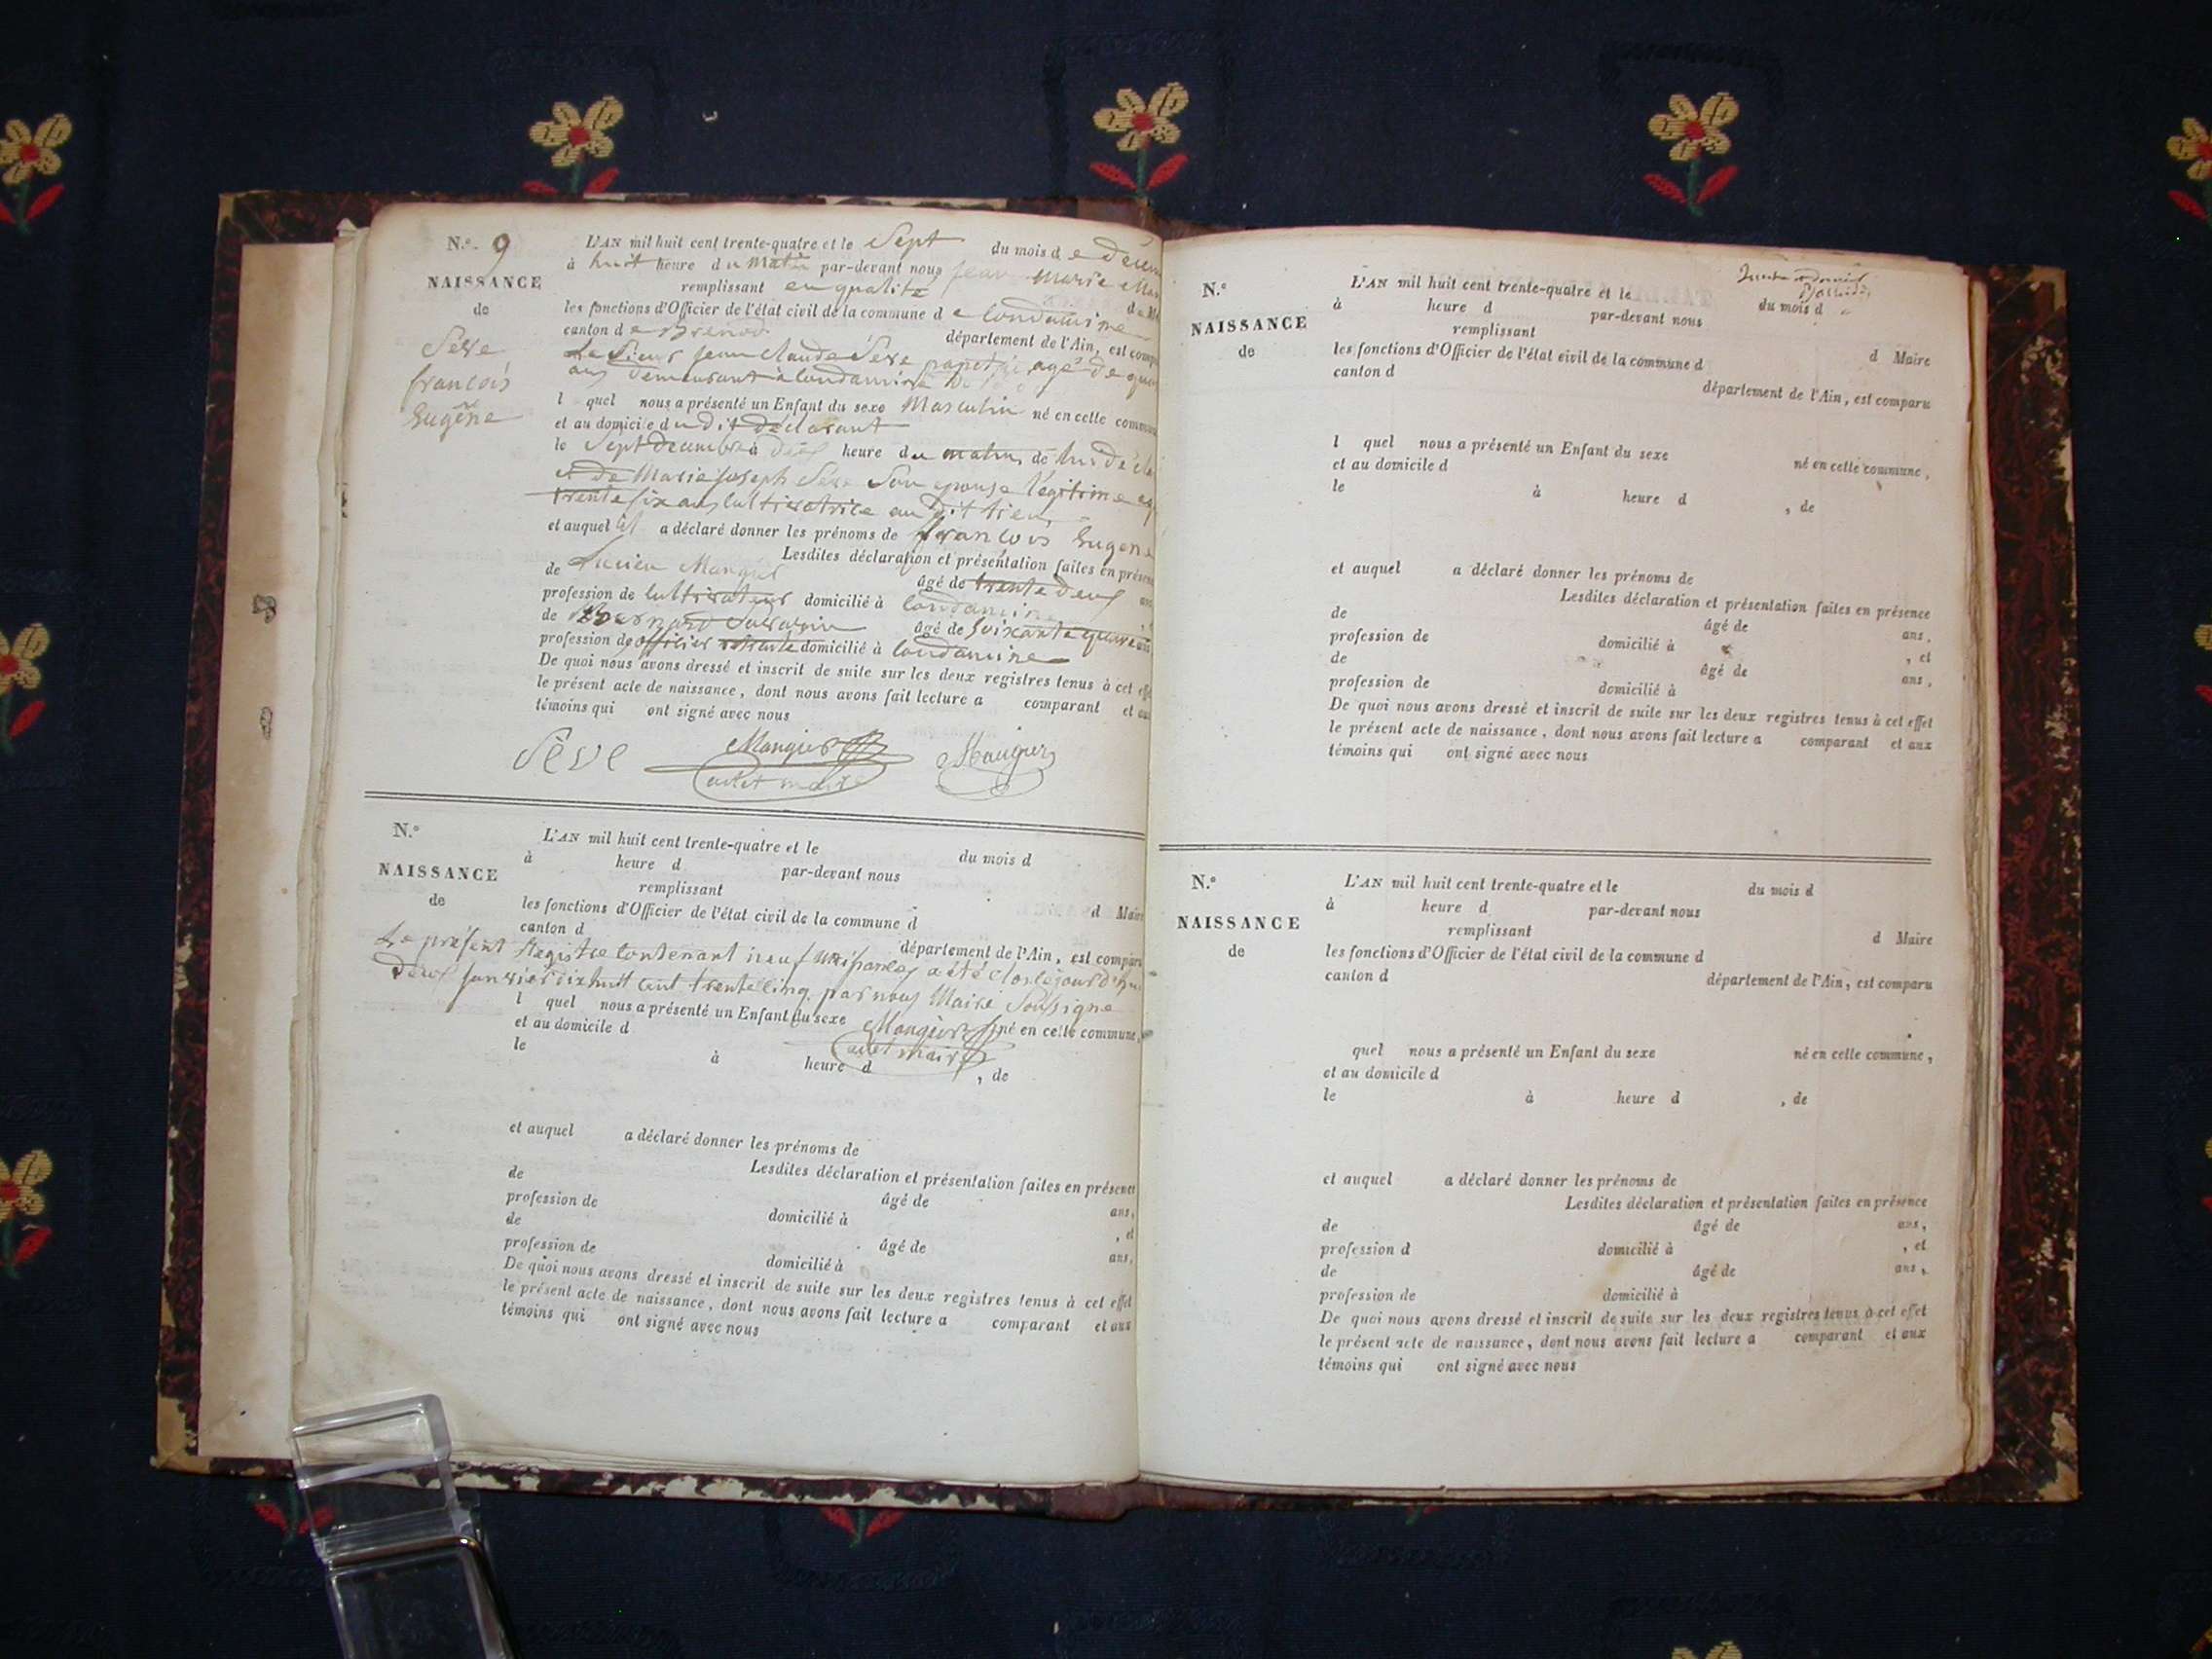 N.° 9
NAISSANCE
de
Sève
françois
Eugène
L'AN mil huit cent trente-quatre et le Sept du mois de
à huit heure du matin par-devant nous jean Marie
remplissant en qualité
les fonctions d'Officier de l'état civil de la commune de Condamine
canton de Brenod département de l'Ain, est
Le Sieur jean Claude Sève agé de
ans demeurant à Condamine
l quel nous a présenté un Enfant du sexe Masculin né en celle
et au domicile dudit déclarant
le Sept Décembre à heure du matin, de lui
et de Marie joseph Sève Son épouse légitime
trente six ans Cultivatrice audit lieu
et auquel il a déclaré donner les prénoms de françois Eugene
Lesdites déclaration et présentation faites en
de Lucien âgé de trente deux
profession de Cultivateur domicilié à Condamine
de Bernard âgé de Soixante
profession de officier domicilié à Condamine
De quoi nous avons dressé et inscrit de suite sur les deux registres tenus à cet
le présent acte de naissance, dont nous avons fait lecture a comparant et
témoins qui ont signé avec nous
Sève Mangier Maugier
N.°
NAISSANCE
de
L'AN mil huit cent trente-quatre et le du mois d
à heure d par-devant nous
remplissant d Maire
les fonctions d'Officier de l'état civil de la commune d
canton d département de l'Ain, est comparu
Le présent Registre Contenant neuf a été Clos le jourd'hui
deux janvier dix huit cent trente Cinq par nous Maire Soussigné
l quel nous a présenté un Enfant du sexe né en celle commune,
Mangier
et au domicile d
le à heure d , de
et auquel a déclaré donner les prénoms de
Lesdites déclaration et présentation faites en présence
de âgé de ans,
profession de domicilié à , et
de âgé de ans,
profession de domicilié à
De quoi nous avons dressé et inscrit de suite sur les deux registres tenus à cet effet
le présent acte de naissance, dont nous avons fait lecture a comparant et aux
témoins qui ont signé avec nous
N.°
NAISSANCE
de
L'AN mil huit cent trente-quatre et le du mois d
à heure d par-devant nous
remplissant d Maire
les fonctions d'Officier de l'état civil de la commune d
canton d département de l'Ain, est comparu
l quel nous a présenté un Enfant du sexe né en celle commune,
et au domicile d
le à heure d , de
et auquel a déclaré donner les prénoms de
Lesdites déclaration et présentation faites en présence
de âgé de ans,
profession de domicilié à , et
de âgé de ans,
profession de domicilié à
De quoi nous avons dressé et inscrit de suite sur les deux registres tenus à cet effet
le présent acte de naissance, dont nous avons fait lecture a comparant et aux
témoins qui ont signé avec nous
N.°
NAISSANCE
de
L'AN mil huit cent trente-quatre et le du mois d
à heure d par-devant nous
remplissant d Maire
les fonctions d'Officier de l'état civil de la commune d
canton d département de l'Ain, est comparu
quel nous a présenté un Enfant du sexe né en celle commune,
et au domicile d
le à heure d , de
et auquel a déclaré donner les prénoms de
Lesdites déclaration et présentation faites en présence
de âgé de ans,
profession d domicilié à , et
de âgé de ans,
profession de domicilié à
De quoi nous avons dressé et inscrit de suite sur les deux registres tenus à cet effet
le présent acte de naissance, dont nous avons fait lecture a comparant et aux
témoins qui ont signé avec nous